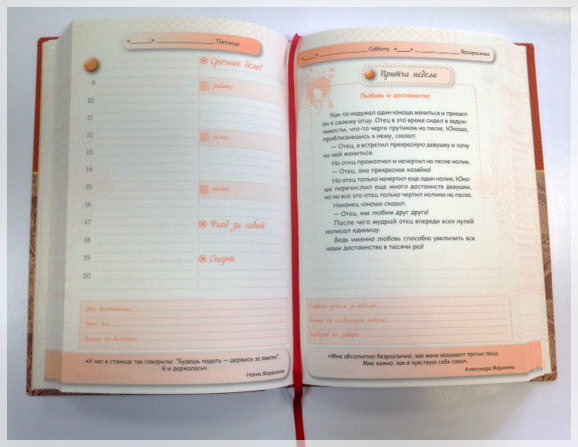 «____» ____________ Пятница
Срочное дело!
9
10
11
12
13
14
15
16
17
18
19
20
работа
семья
личное
Уход за собой
Спорт
Мои достижения
Чему я
Планы на выходные
«У нас в станице так говорили: "Будешь падать — держись за землю".
Я и держалась».
Нонна Мордюкова
«____» ____________ Суббота «____» ____________ Воскресенье
Притча недели
Любовь и достоинства
Как-то надумал один юноша жениться и пришел
он к своему отцу. Отец в это время сидел в задум-
чивости, что-то чертя прутиком на песке. Юноша,
приблизившись к нему, сказал:
— Отец, я встретил прекрасную девушку и хочу
на ней жениться.
Но отец промолчал и начертил на песке нолик.
— Отец, она прекрасная хозяйка!
Но отец только начертил еще один нолик. Юно-
ша перечислил еще много достоинств девушки,
но на все это отец только чертил нолики на песке.
Наконец юноша сказал:
— Отец, мы любим друг друга!
После чего мудрый отец впереди всех нулей
написал единицу.
Ведь именно любовь способна увеличить все
наши достоинства в тысячи раз!
успехи за неделю
Планы на следующую неделю
на завтра
«Мне абсолютно безразлично, как меня называют третьи лица.
Мне важно, как я чувствую себя сама».
Александра Маринина